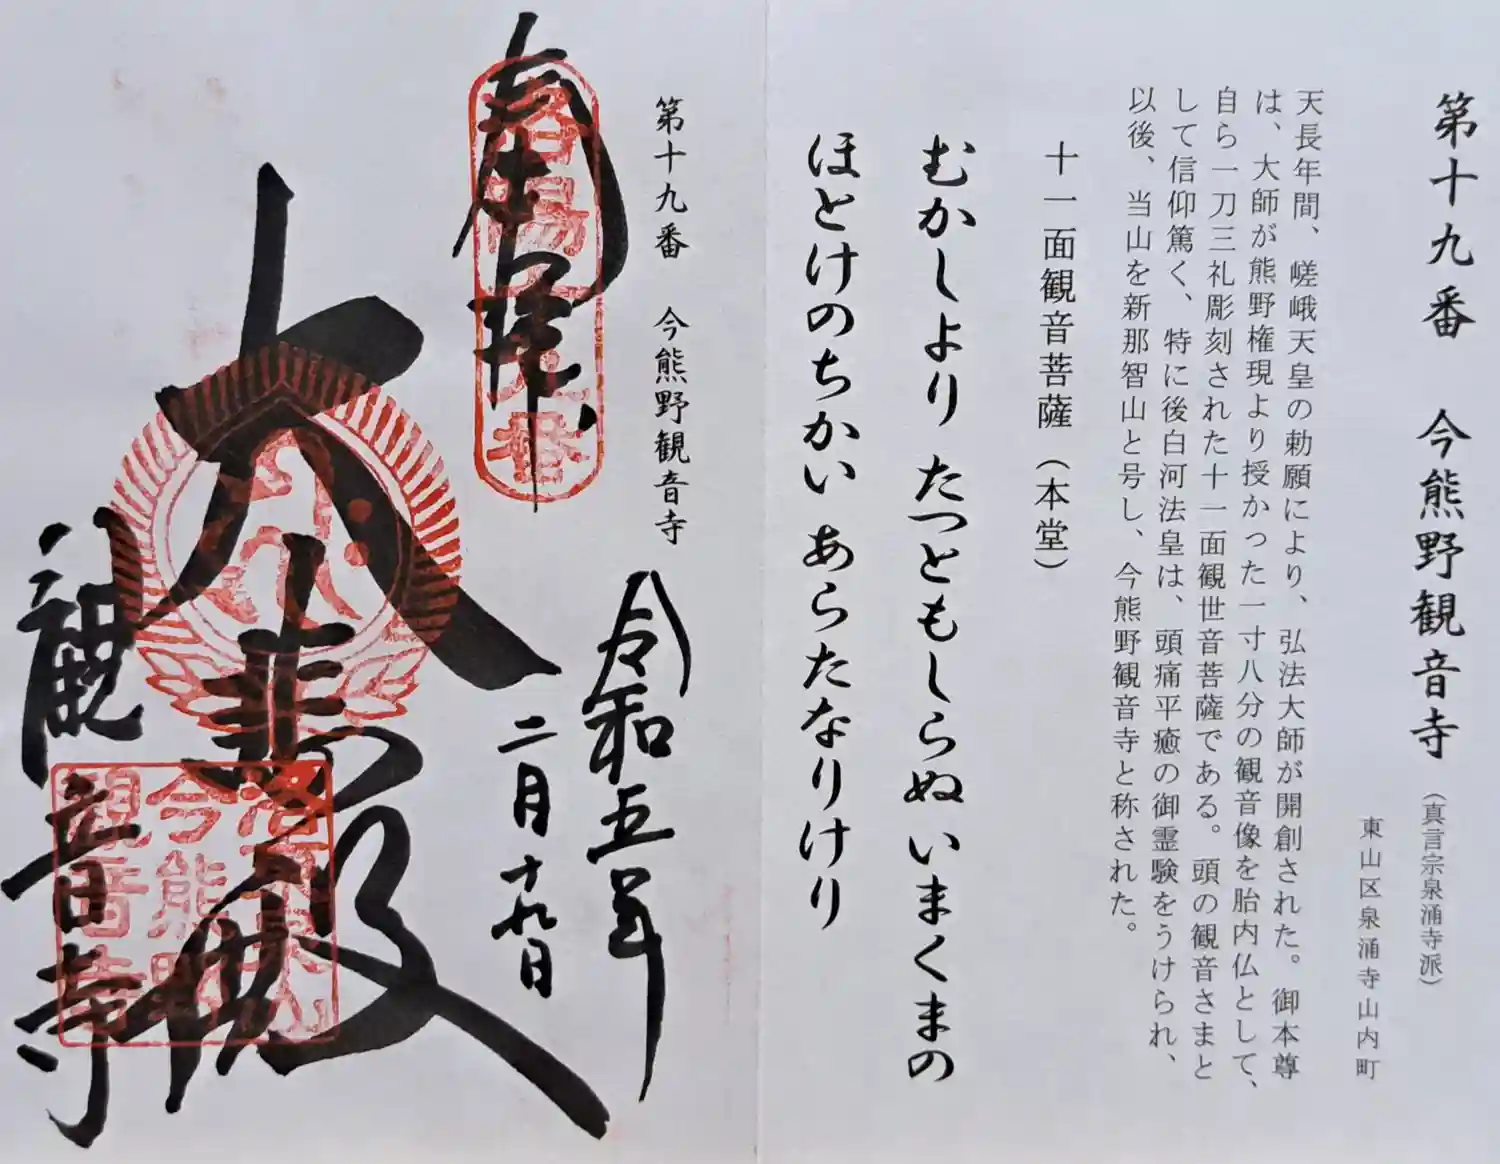 第十九番　今熊野観音寺（真言宗泉涌寺派）
東山区泉涌寺山内町
天長年間、嵯峨天皇の勅願により、弘法大師が開創された。御本尊
は、大師が熊野権現より授かった一寸八分の観音像を胎内仏として、
自ら一刀三礼彫刻された十一面観世音菩薩である。頭の観音さまと
して信仰篤く、特に後白河法皇は、頭痛平癒の御霊験をうけられ、
以後、当山を新那智山と号し、今熊野観音寺と称された。
十一面観音菩薩（本堂）
むかしより たつともしらぬ いまくまの
ほとけのちかい あらたなりけり
第十九番　今熊野観音寺
令和五年
二月十九日
奉拝
洛陽十九番
大悲殿
観音寺
今熊野
観音寺